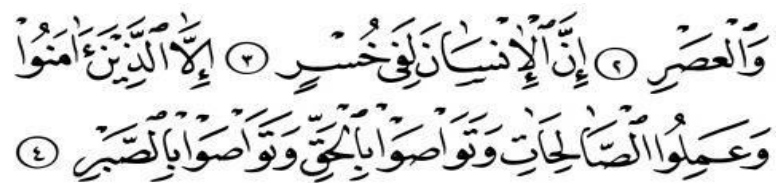 وَٱلْعَصْرِ ٢ إِنَّ ٱلْإِنْسَانَ لَفِى خُسْرٍ ٣ إِلَّا ٱلَّذِينَ ءَامَنُوا۟
وَعَمِلُوا۟ ٱلصَّالِحَاتِ وَتَوَاصَوْا۟ بِٱلْحَقِّ وَتَوَاصَوْا۟ بِٱلصَّبْرِ ٤